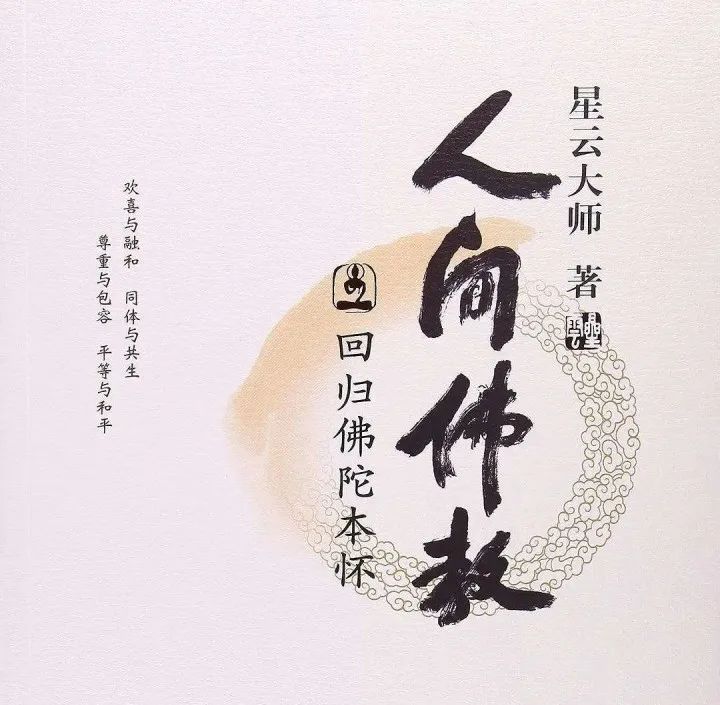 星云大师 著
星云
人间佛教
回归佛陀本怀
欢喜与融和 同体与共生
尊重与包容 平等与和平